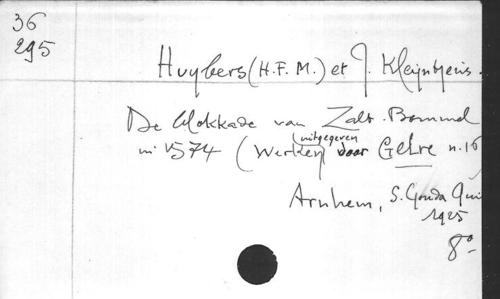 36
295
Huybers (H. F. M.) et J. Kleijntjens.
De blokkade van Zalt-Bommel
in 1574 (Werken uitgegeven door Gelre n. 16
Arnhem, S. Gouda Quint
1925
8°